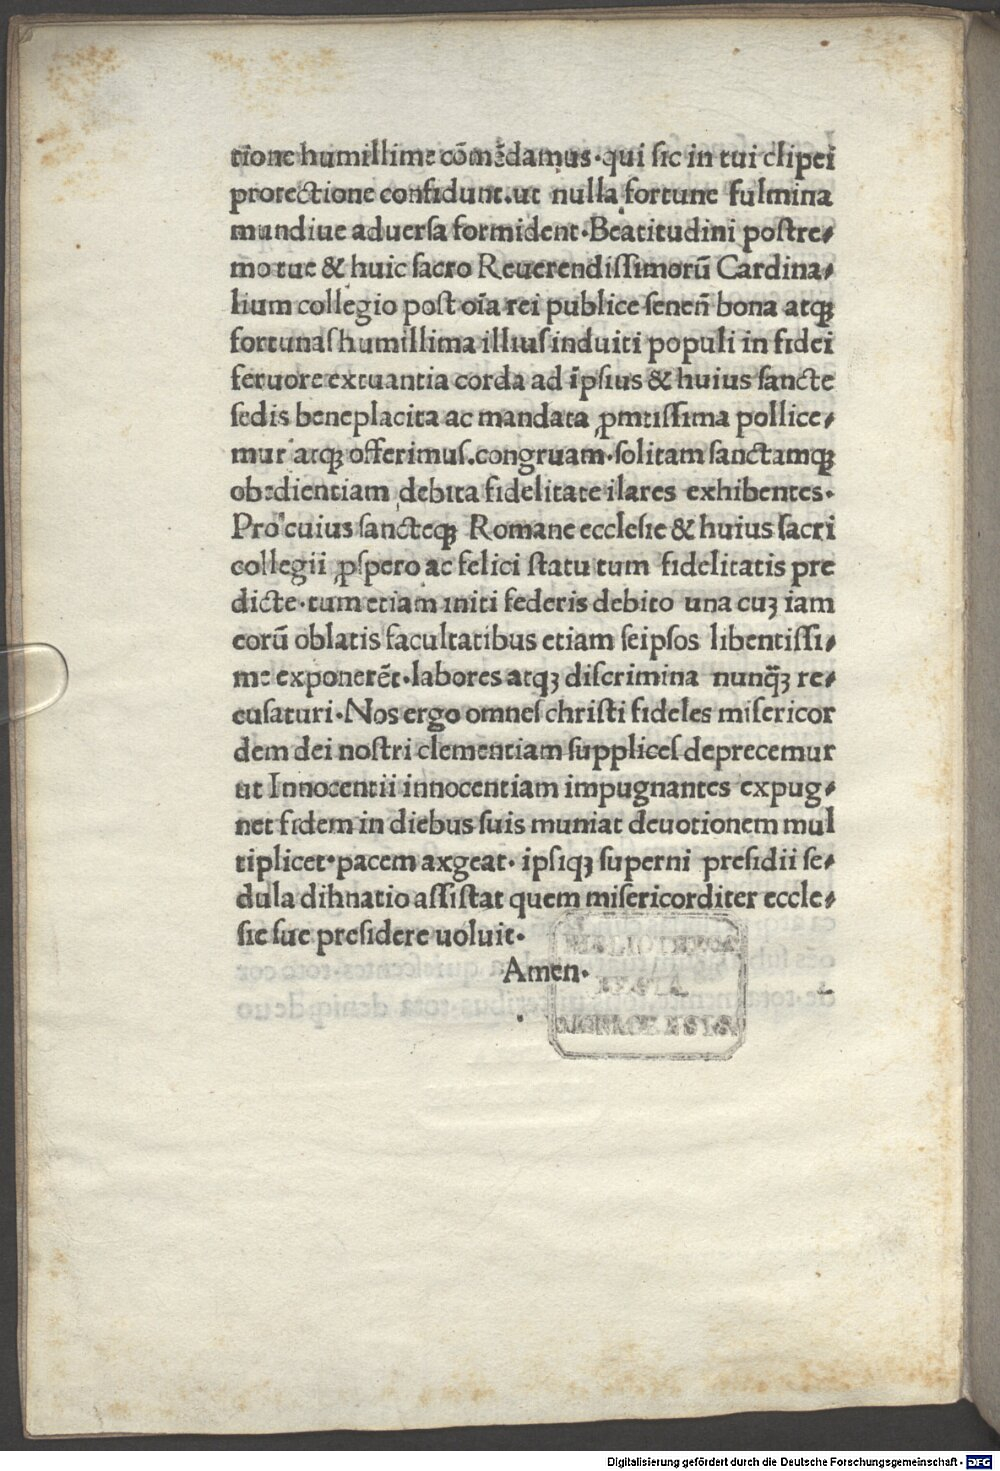 tione humillime cōmēdamus·qui sic in tui clipei
protectione confidunt.ut nulla fortune fulmina
mundiue aduersa formident·Beatitudini postre⸗
mo tue & huic sacro Reuerendissimorū Cardina⸗
lium collegio post oīa rei publice seneñ bona atqꝫ
fortunas humillima illius induiti populi in fidei
feruore extuantia corda ad īpsius & huius sancte
sedis beneplacita ac mandata ꝓmtissima pollice⸗
mur atqꝫ offerimus.congruam·solitam sanctamqꝫ
obedientiam debita fidelitate ilares exhibentes·
Pro cuius sancteqꝫ Romane ecclesie & huius sacri
collegii ꝓspero ac felici statu tum fidelitatis pre
dicte·tum etiam initi federis debito una cuꝫ iam
eorū oblatis facultatibus etiam seipsos libentissi⸗
me exponerēt·labores atqꝫ discrimina nunq̄ꝫ re⸗
cusaturi·Nos ergo omnes christi fideles misericor
dem dei nostri clementiam supplices deprecemur
ut Innocentii innocentiam impugnantes expug⸗
net fidem in diebus suis muniat deuotionem mul
tiplicet·pacem axgeat· ipsiqꝫ superni presidii se⸗
dula dihnatio assistat quem misericorditer eccle⸗
sie sue presidere uoluit·
Amen·
BIBLIOTHECA
REGIA
MONACENSIS.
Digitalisierung gefördert durch die Deutsche Forschungsgemeinschaft - DFG